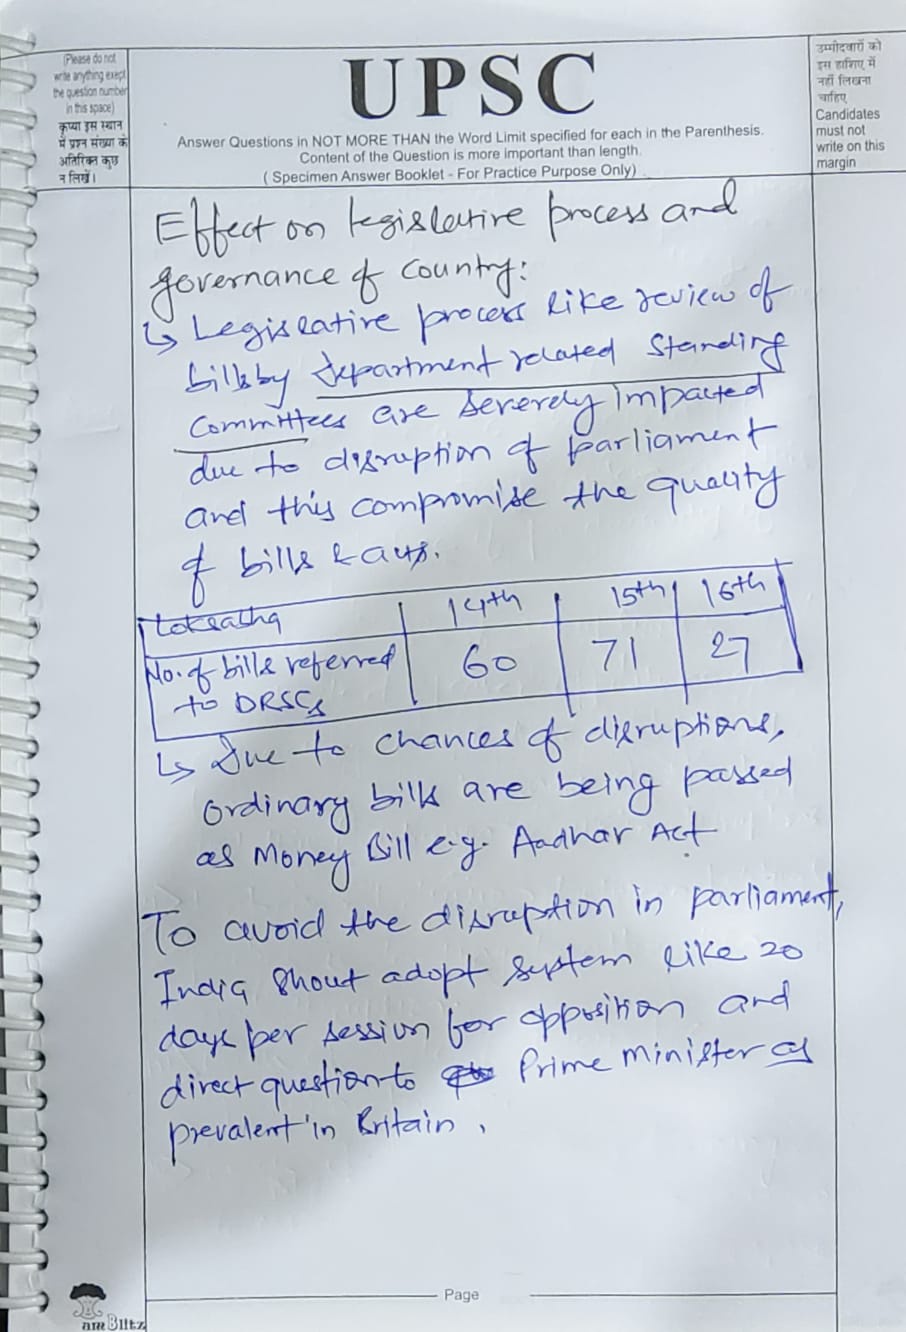 (Please do not
write anything exept
the question number
in this space)
कृप्या इस स्थान
में प्रश्न संख्या के
अतिरिक्त कुछ
न लिखें।
UPSC
Answer Questions in NOT MORE THAN the Word Limit specified for each in the Parenthesis.
Content of the Question is more important than length.
( Specimen Answer Booklet - For Practice Purpose Only)
उम्मीदवारों को
इस हाशिए में
नहीं लिखना
चाहिए
Candidates
must not
write on this
margin
Effect on legislative process and
governance of country:
↳ Legislative process like review of
bills by department related standing
committees are severely impacted
due to disruption of parliament
and this compromise the quality
of bills & acts.
Loksabha 14th 15th 16th
No. of bills referred 60 71 27
to DRSCs
↳ Due to chances of disruptions,
ordinary bills are being passed
as Money Bill e.g. Aadhar Act
To avoid the disruption in parliament,
India shout adopt system like 20
days per session for opposition and
direct question to Prime minister as
prevalent in Britain.
Page
am Blitz